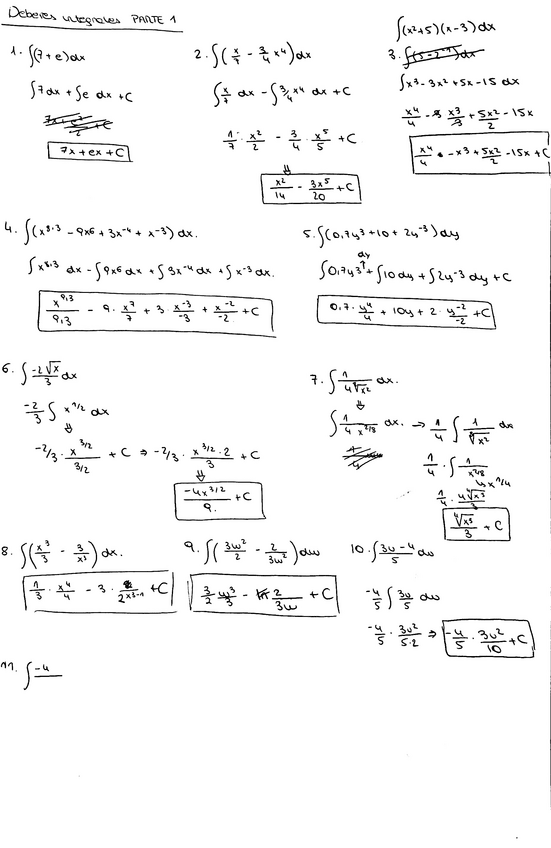 Deberes integrales PARTE 1
1. ∫(7+e)dx
∫7dx + ∫e dx + C
7x + ex + C
2. ∫(x/7 - 3/4 x⁴)dx
∫x/7 dx - ∫3/4 x⁴ dx + C
1/7 · x²/2 - 3/4 · x⁵/5 + C
⇓
x²/14 - 3x⁵/20 + C
∫(x²+5)(x-3)dx
3.
∫x³ - 3x² + 5x - 15 dx
x⁴/4 - 3 x³/3 + 5x²/2 - 15x
x⁴/4 - x³ + 5x²/2 - 15x + C
4. ∫(x^8,3 - 9x⁶ + 3x⁻⁴ + x⁻³) dx.
∫x^8,3 dx - ∫9x⁶ dx + ∫3x⁻⁴ dx + ∫x⁻³ dx.
x^9,3/9,3 - 9 · x⁷/7 + 3 · x⁻³/-3 + x⁻²/-2 + C
5. ∫(0,7y³ + 10 + 2y⁻³)dy
dy
∫0,7y³ + ∫10dy + ∫2y⁻³ dy + C
0,7 · y⁴/4 + 10y + 2 · y⁻²/-2 + C
6. ∫ -2√x/3 dx
-2/3 ∫ x^1/2 dx
⇓
-2/3 · x^3/2 / 3/2 + C ⇒ -2/3 · x^3/2 · 2 / 3 + C
⇓
-4x^3/2 / 9 + C
7. ∫ 1/4⁸√x² dx.
⇓
∫ 1/4 x^2/8 dx. → 1/4 ∫ 1/⁸√x² dx
1/4 · ∫ 1/x^2/8
↳ x^1/4
1/4 · 4⁴√x³/3
⁴√x³/3 + C
8. ∫(x³/3 - 3/x³) dx.
1/3 · x⁴/4 - 3 · 2/2^x3-1 + C
9. ∫(3w²/2 - 2/3w²)dw
3/2 w³/3 - 2/3w + C
10. ∫ 3u-4/5 du
-4/5 ∫ 3u/5 du
-4/5 · 3u²/5·2 ⇒ -4/5 · 3u²/10 + C
11. ∫ -4